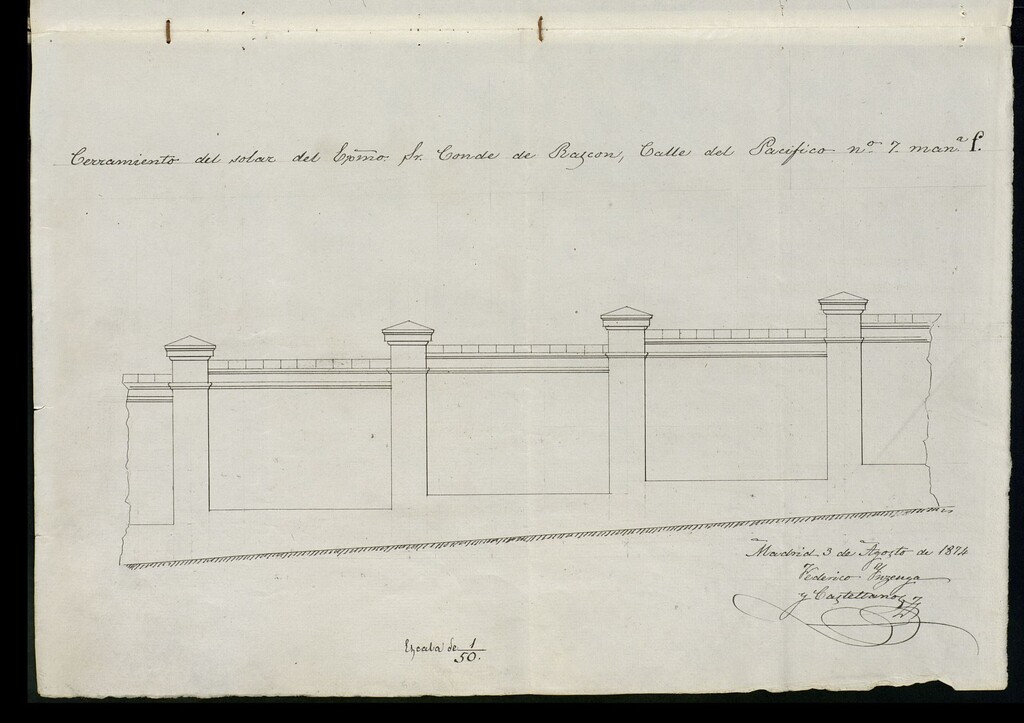 Cerramiento del solar del Exmo. Sr. Conde de Rascon, Calle del Pacifico nº 7. manª f.
Madrid 3 de Agosto de 1874
Federico Inzenga
y Castellanos
Escala de 1/50.